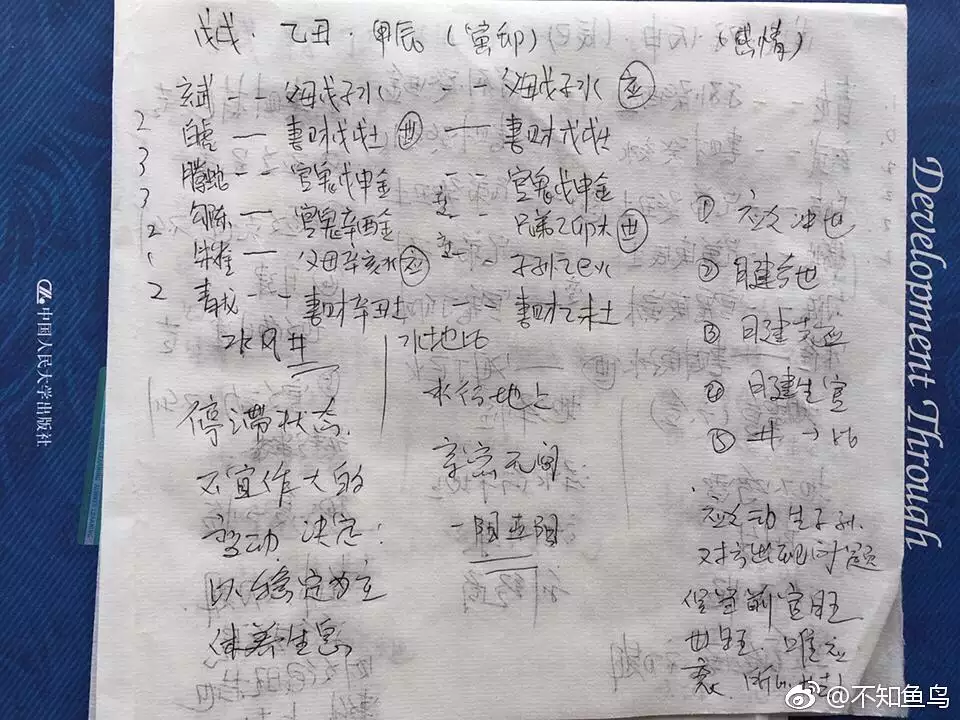 戊戌·乙丑·甲辰(寅卯)(感情)
玄武 -- 父母戊子水 -- 父母戊子水 应
2 白虎 — 妻财戊戌土 世 — 妻财戊戌土
3 腾蛇 -- 官鬼戊申金 -- 官鬼戊申金
3 勾陈 — 官鬼辛酉金 -- 兄弟乙卯木 世
2 朱雀 — 父母辛亥水 应 -- 子孙乙巳火
2 青龙 -- 妻财辛丑土 妻财乙未土
水风井
水地比
停滞状态
不宜作大的
变动 决定:
以稳定为主
休养生息
水行地上
亲密无间
一阳五阴
① 应爻冲世
② 日建合世
③ 日建克应
④ 日建生官
⑤ 井→比
应爻动
对方出现问题
官旺
世旺 唯应
衰
中国人民大学出版社
Development Through
@不知鱼鸟